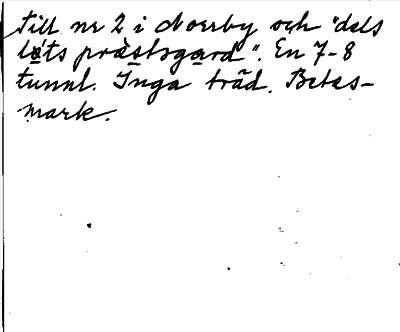 till nr 2 i Norrby och "dels
lø̀ts prȁstsgard". En 7-8
tunnl. Inga träd. Betes-
mark.